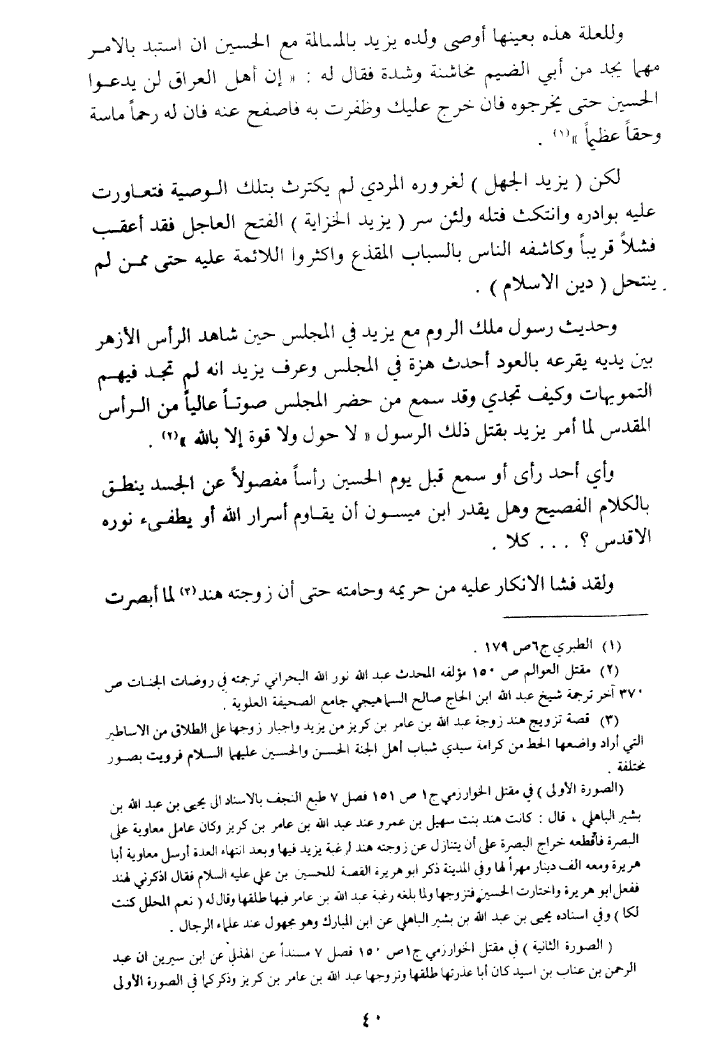 وللعلة هذه بعينها أوصى ولده يزيد بالمسالمة مع الحسين ان استبد بالامر
مهما يجد من أبي الضيم مخاشنة وشدة فقال له : « إن أهل العراق لن يدعوا
الحسين حتى يخرجوه فان خرج عليك وظفرت به فاصفح عنه فان له رحماً ماسة
وحقاً عظيماً »(١) .
لكن ( يزيد الجهل ) لغروره المردي لم يكترث بتلك الوصية فتعاورت
عليه بوادره وانتكث فتله ولئن سر ( يزيد الخزاية ) الفتح العاجل فقد أعقب
فشلاً قريباً وكاشفه الناس بالسباب المقذع واكثروا اللائمة عليه حتى ممن لم
ينتحل ( دين الاسلام ) .
وحديث رسول ملك الروم مع يزيد في المجلس حين شاهد الرأس الأزهر
بين يديه يقرعه بالعود أحدث هزة في المجلس وعرف يزيد انه لم تجد فيهم
التمويهات وكيف تجدي وقد سمع من حضر المجلس صوتاً عالياً من الرأس
المقدس لما أمر يزيد بقتل ذلك الرسول « لا حول ولا قوة إلا بالله »(٢) .
وأي أحد رأى أو سمع قبل يوم الحسين رأساً مفصولاً عن الجسد ينطق
بالكلام الفصيح وهل يقدر ابن ميسون أن يقاوم أسرار الله أو يطفىء نوره
الاقدس ؟ ... كلا .
ولقد فشا الانكار عليه من حريمه وحامته حتى أن زوجته هند(٣) لما أبصرت
(١) الطبري ج٦ص ١٧٩ .
(٢) مقتل العوالم ص ١٥٠ مؤلفه المحدث عبد الله نور الله البحراني ترجمته في روضات الجنات ص
٣٧٠ آخر ترجمة شيخ عبد الله ابن الحاج صالح السماهيجي جامع الصحيفة العلوية .
(٣) قصة تزويج هند زوجة عبد الله بن عامر بن كريز من يزيد واجبار زوجها على الطلاق من الاساطير
التي أراد واضعها الحط من كرامة سيدي شباب أهل الجنة الحسن والحسين عليهما السلام فرويت بصور
مختلفة .
(الصورة الأولى ) في مقتل الخوارزمي ج١ ص ١٥١ فصل ٧ طبع النجف بالاسناد الى يحيى بن عبد الله بن
بشير الباهلي ، قال : كانت هند بنت سهيل بن عمرو عند عبد الله بن عامر بن كريز وكان عامل معاوية على
البصرة فأقطعه خراج البصرة على أن يتنازل عن زوجته هند لرغبة يزيد فيها وبعد انتهاء العدة أرسل معاوية أبا
هريرة ومعه الف دينار مهراً لها وفي المدينة ذكر ابو هريرة القصة للحسين بن علي عليه السلام فقال اذكرني لهند
ففعل ابو هريرة واختارت الحسين فتزوجها ولما بلغه رغبة عبد الله بن عامر فيها طلقها وقال له ( نعم المحلل كنت
لكا ) وفي اسناده يحيى بن عبد الله بن بشير الباهلي عن ابن المبارك وهو مجهول عند علماء الرجال .
( الصورة الثانية ) في مقتل الخوارزمي ج١ص ١٥٠ فصل ٧ مسنداً عن الهذلي عن ابن سيرين ان عبد
الرحمن بن عناب بن اسيد كان أبا عذرتها طلقها وتزوجها عبد الله بن عامر بن كريز وذكر كما في الصورة الأولى
٤٠